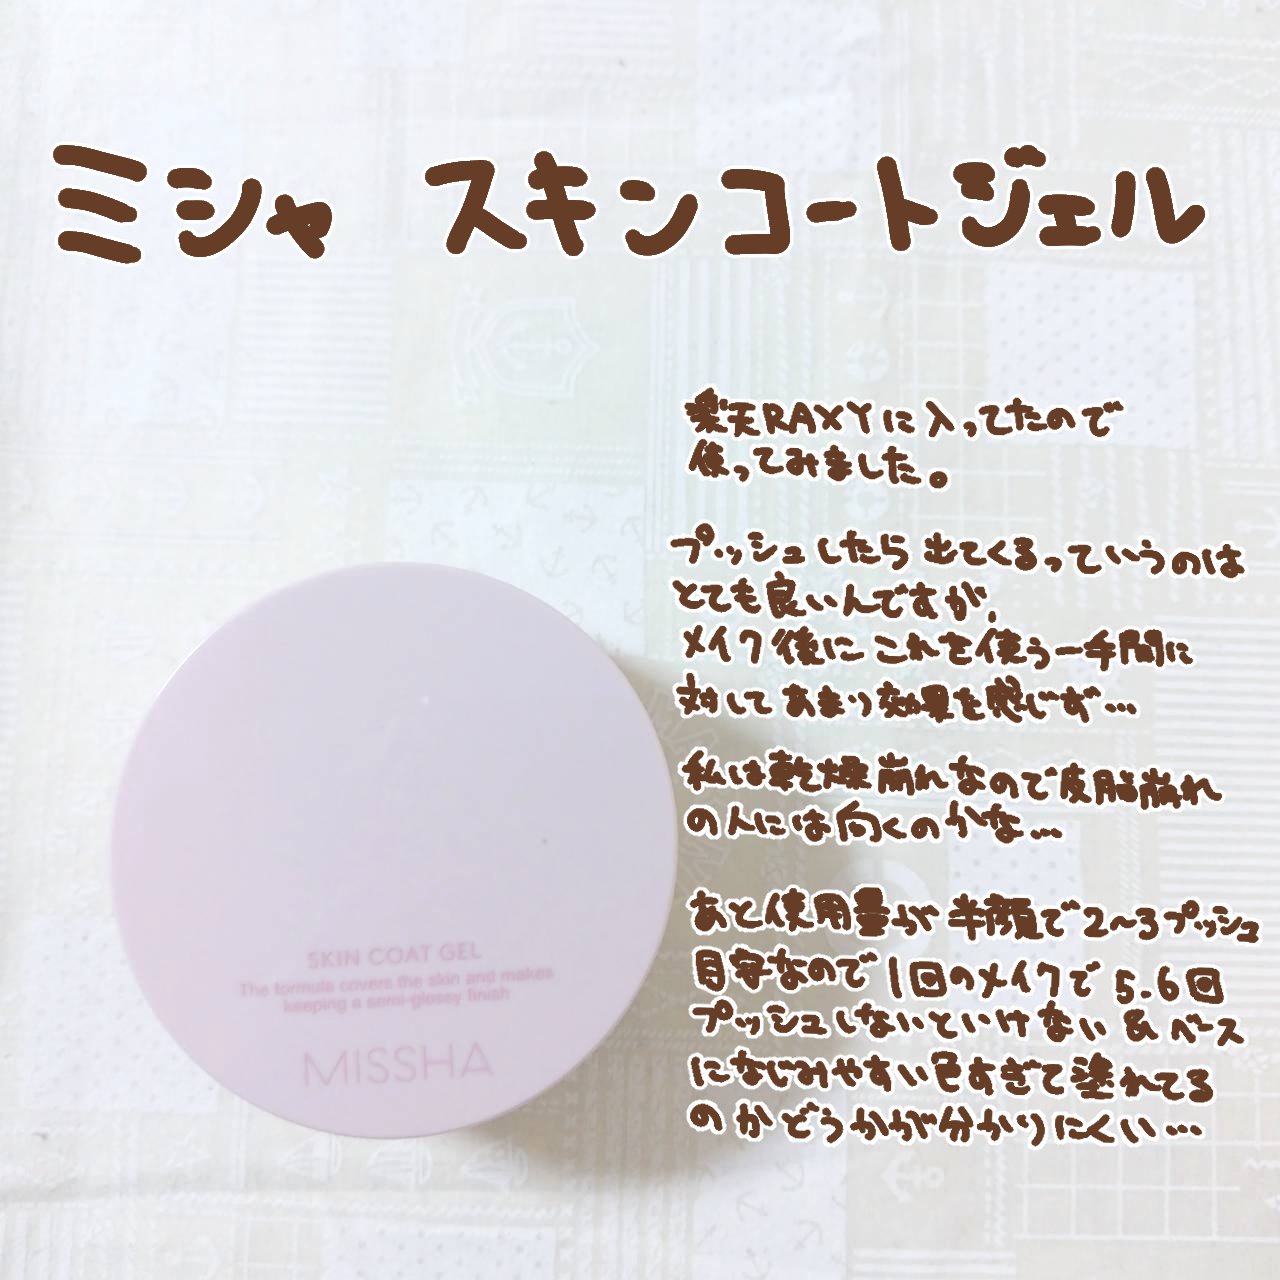 ミシャ スキンコートジェル
楽天RAXYに入ってたので
使ってみました。
プッシュしたら出てくるっていうのは
とても良いんですが、
メイク後にこれを使う一手間に
対してあまり効果を感じず…
私は乾燥崩れなので皮脂崩れ
の人には向くのかな…
あと使用量が半顔で2〜3プッシュ
目安なので1回のメイクで5.6回
プッシュしないといけない&ベース
になじみやすい色すぎて塗れてる
のかどうかが分かりにくい…
SKIN COAT GEL
The formula covers the skin and makes
keeping a semi-glossy finish
MISSHA